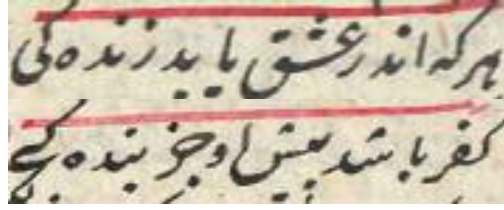 هر که اندر عشق یابد زنده گی
کفر باشد پیش او جز بنده گی